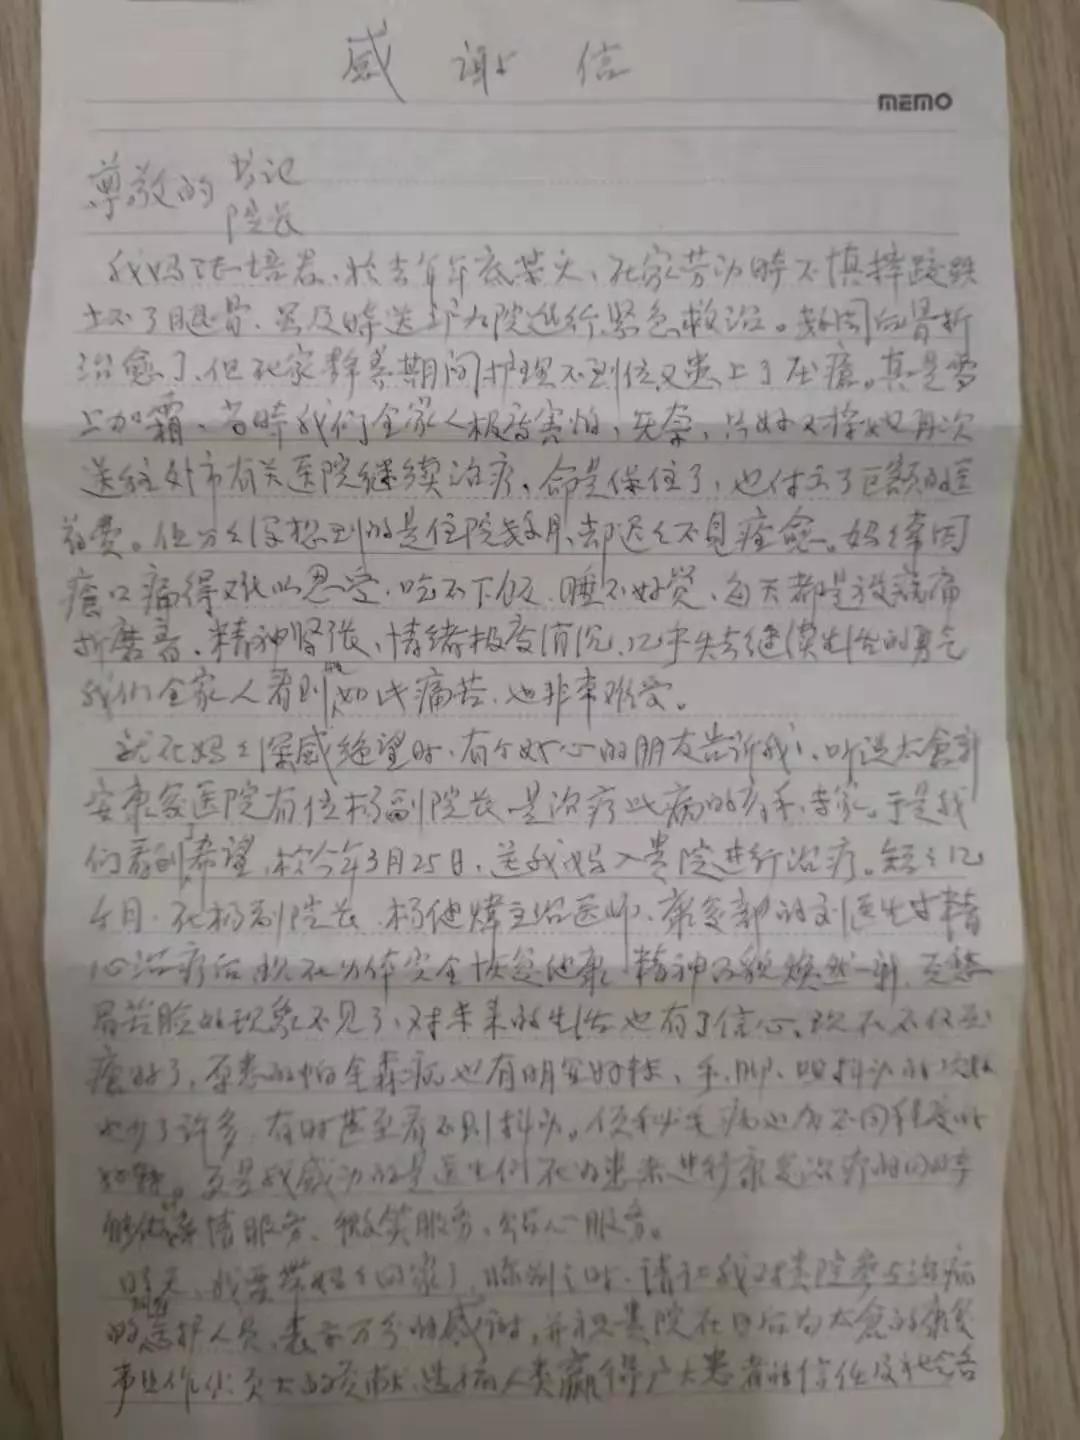 感谢信
MEMO
尊敬的书记
院长
我妈 培 于去年年底某天、在家劳动时不慎摔跤跌
坏了腿骨、虽及时送 九院进行紧急救治。 骨折
治愈了、但在家静养期间护理不到位又患上了压疮。真是雪
上加霜、当时我们全家人极度害怕、无奈、只好又将她再次
送往外市有关医院继续治疗、命是保住了、也付出了巨额的医
药费。但万万没想到的是住院数月、却迟迟不见痊愈。妈妈因
疮口痛得难以忍受、吃不下饭、睡不好觉、每天都是被病痛
折磨着、精神紧张、情绪极度消沉、几乎失去继续生活的勇气
我们全家人看到 如此痛苦、也非常难受。
就在妈妈深感绝望时、有个好心的朋友告诉我、听说太仓新
安康复医院有位杨副院长是治疗此病的高手、专家。于是我
们看到了希望、于今年3月25日、送我妈入贵院进行治疗。短短几
个月、在杨副院长、杨 主治医师、康复部的刘医生的精
心治疗后 现在身体完全恢复健康 精神面貌焕然一新、
眉苦脸的现象不见了、对未来的生活也有了信心。现在不仅压
疮好了、原患的帕金森病也有明显好转、手、脚、 抖动的次数
也少了许多、有时甚至看不到抖动。便秘毛病也有不同程度的
好转。更是我感动的是医生们在为患者进行康复治疗的同时
能做 情服务、微笑服务、 心服务。
明天、我要带妈妈回家了、临别之时、请让我对贵院参与治病
的 医护人员、表示万分的感谢、并祝贵院在日后为太仓的康复
事业作出更大的贡献、造福人类赢得广大患者的信任及社会各